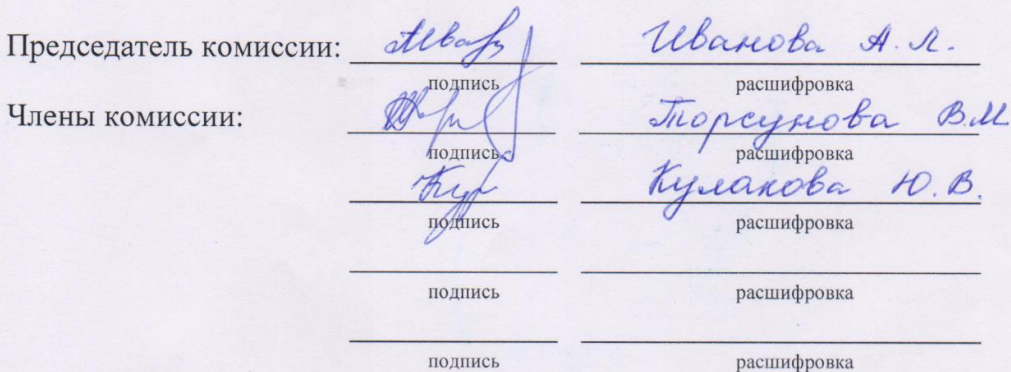 Председатель комиссии: Иванова А.Л.
подпись расшифровка
Члены комиссии: Торсунова В.М
подпись расшифровка
Кулакова Ю.В.
подпись расшифровка
подпись расшифровка
подпись расшифровка